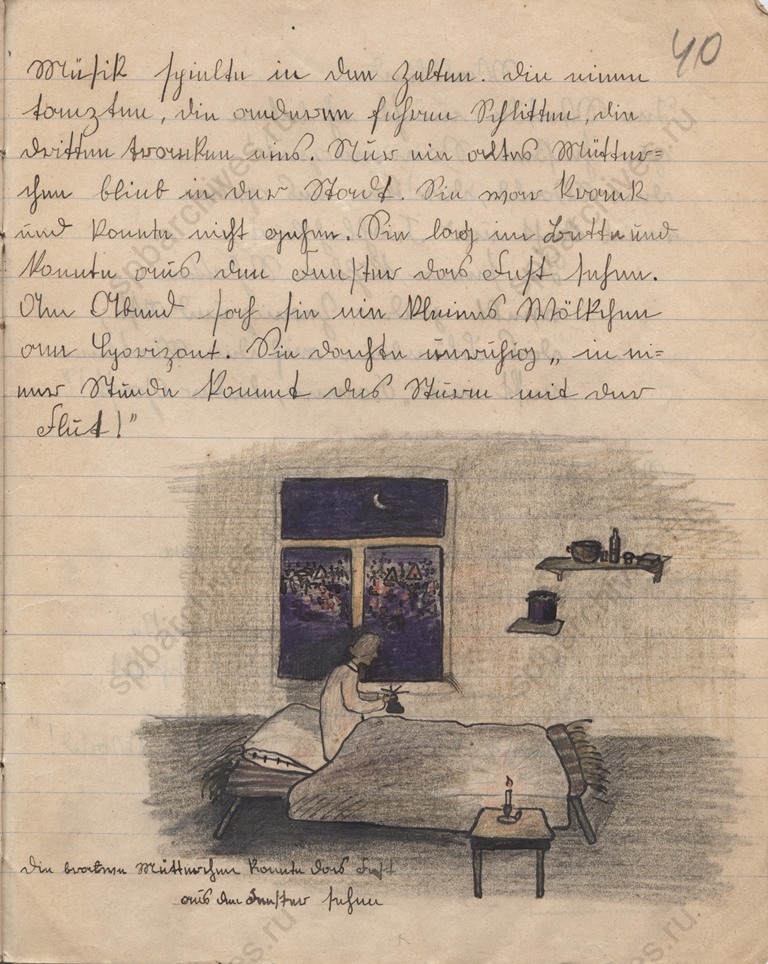 40
Müsik spielte in den Zelten. Die einen
tanzten, die anderen fuhren Schlitten, die
dritten tranken eins. Nur ein altes Mütter=
chen blieb in der Stadt. Sie war krank
und konnte nicht gehen. Sie lag im Bette und
konnte aus den Fenster das Fest sehen.
Am Abend sah sie ein kleines Wölkchen
am Horizont. Sie dachte unruhig „in ei=
ner Stunde kommt des Sturm mit der
Flut!"
Die Mütterchen konnte das Fest
aus den Fenster sehen
spbarchives.ru